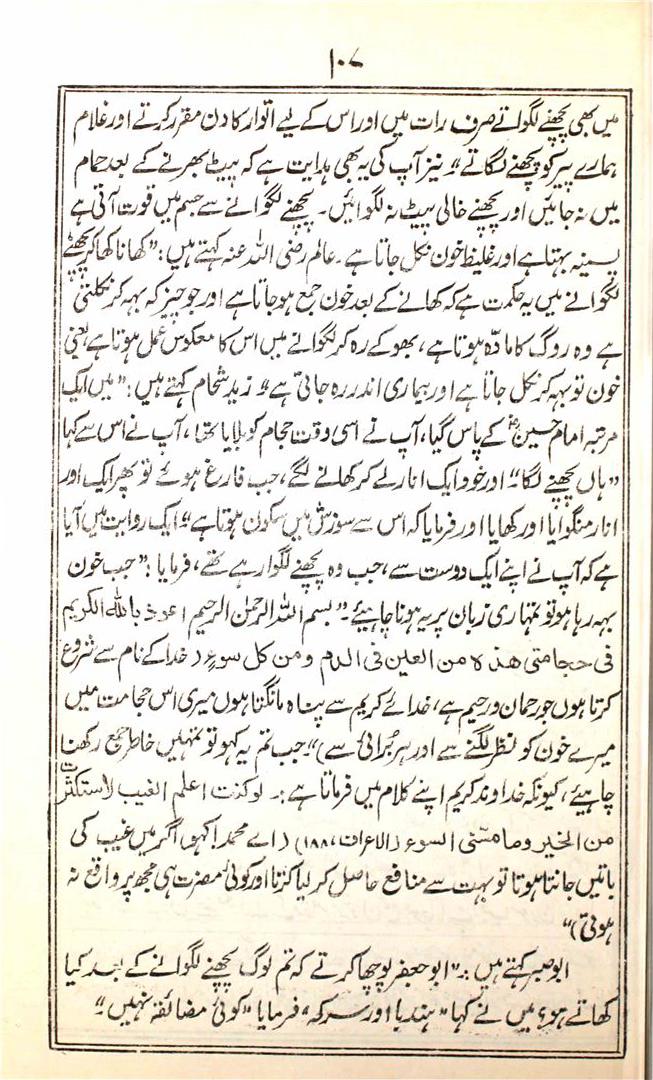 ۱۰۷
میں بھی پچھنے لگواتے صرف رات میں اور اس کے لیے اتوار کا دن مقرر کرتے اور غلام
ہمارے پیر کو پچھنے لگاتے“۔ نیز آپ کی یہ بھی ہدایت ہے کہ پیٹ بھرنے کے بعد حمام
میں نہ جائیں اور پچھنے خالی پیٹ نہ لگوائیں۔ پچھنے لگوانے سے جسم میں قوت آتی ہے
پسینہ بہتا ہے اور غلیظ خون نکل جاتا ہے۔ عالم رضی اللہ عنہ کہتے ہیں: ”کھانا کھا کر پچھنے
لگوانے میں یہ حکمت ہے کہ کھانے کے بعد خون جمع ہو جاتا ہے اور جو چیز کہ بہہ کر نکلتی
ہے وہ روگ کا مادہ ہوتا ہے، بھوکے رہ کر لگوانے میں اس کا معکوس عمل ہوتا ہے، یعنی
خون تو بہہ کر نکل جاتا ہے اور بیماری اندر رہ جاتی ہے“۔ زید شحام کہتے ہیں: ”میں ایک
مرتبہ امام حسین کے پاس گیا، آپ نے اسی وقت حجام کو بلایا تھا، آپ نے اس سے کہا
”ہاں پچھنے لگا“ اور خود ایک انار لے کر کھانے لگے، جب فارغ ہوئے تو پھر ایک اور
انار منگوایا اور کھایا اور فرمایا کہ اس سے سوزش میں سکون ہوتا ہے“ ایک روایت میں آیا
ہے کہ آپ نے اپنے ایک دوست سے، جب وہ پچھنے لگوا رہے تھے، فرمایا: ”جب خون
بہہ رہا ہو تو تمہاری زبان پر یہ ہونا چاہیئے۔ ”بسم اللہ الرحمٰن الرحیم اعوذ باللہ الکریم
فی حجامتی ھذہ من العین فی الدم ومن کل سوء (خدا کے نام سے شروع
کرتا ہوں جو رحمان و رحیم ہے، خدائے کریم سے پناہ مانگتا ہوں میری اس حجامت میں
میرے خون کو نظر لگنے سے اور ہر برائی سے)“۔ جب تم یہ کہو تو تمہیں خاطر جمع رکھنا
چاہیئے، کیونکہ خداوند کریم اپنے کلام میں فرماتا ہے:۔ لو کنت اعلم الغیب لاستکثرت
من الخیر وما مسّنی السوء (الاعراف، ۱۸۸) (اے محمد! کہو) اگر میں غیب کی
باتیں جانتا ہوتا تو بہت سے منافع حاصل کر لیا کرتا اور کوئی مضرت ہی مجھ پر واقع نہ
ہوتی)“
ابو بصیر کہتے ہیں:۔ ”ابو جعفر پوچھا کرتے کہ تم لوگ پچھنے لگوانے کے بعد کیا
کھاتے ہو؟ میں نے کہا ”ہندبا اور سرکہ“ فرمایا ”کوئی مضائقہ نہیں“۔